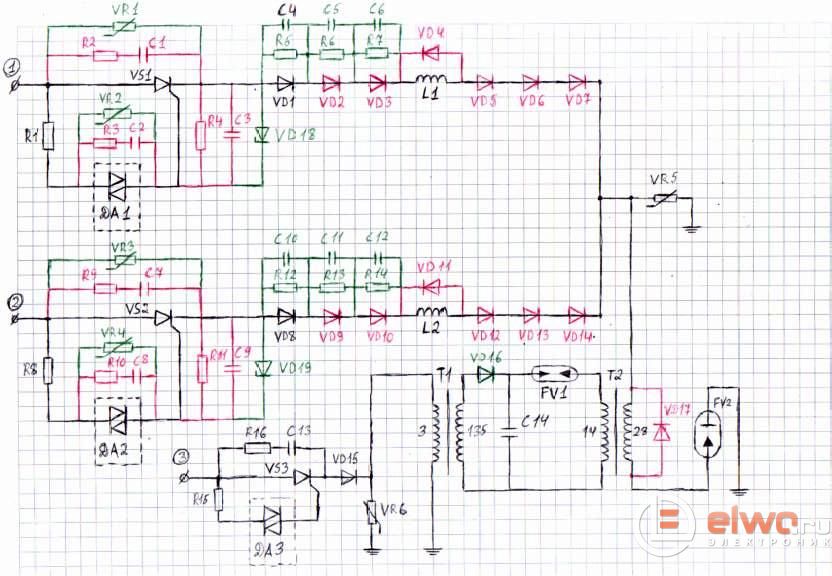 VR1
C4 C5 C6
R2 C1
R5 R6 R7 VD4
1 VS1
VD1 VD2 VD3 L1 VD5 VD6 VD7
VR2
R1 R3 C2 R4 C3 VD18
DA1
VR5
VR3
C10 C11 C12
R9 C7
R12 R13 R14 VD11
2 VS2
VD8 VD9 VD10 L2 VD12 VD13 VD14
VR4
R8 R10 C8 R11 C9 VD19
DA2
VD16
T1 FV1 T2
3 135 C14 14 28 VD17 FV2
R16 C13
3 VS3 VD15
R15 VR6
DA3
elwo.ru
ЭЛЕКТРОНИК